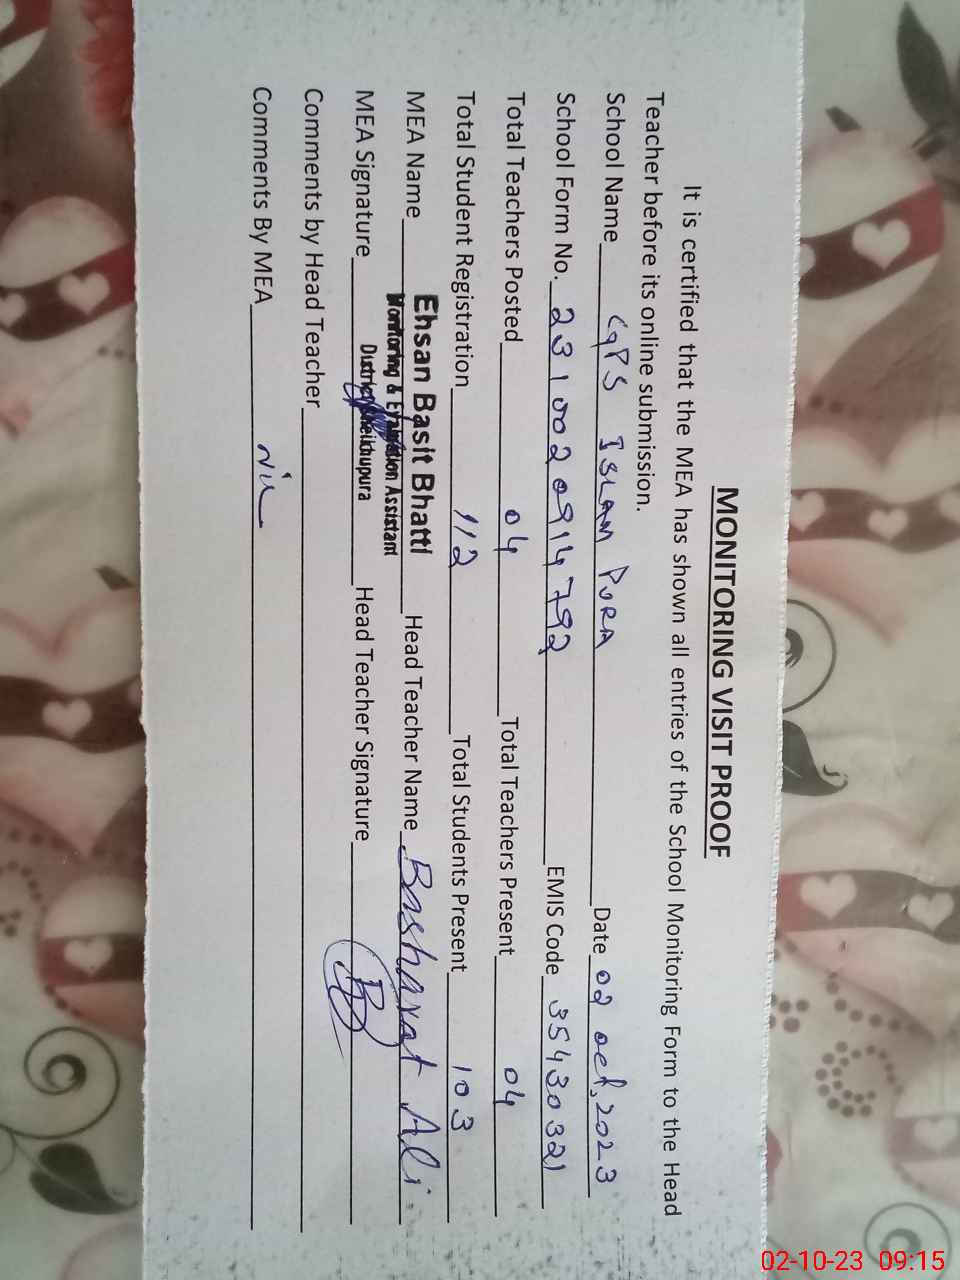 MONITORING VISIT PROOF
It is certified that the MEA has shown all entries of the School Monitoring Form to the Head
Teacher before its online submission.
School Name GPS ISLAM PURA Date 02 oct, 2023
School Form No. 231002 0914792 EMIS Code 35430321
Total Teachers Posted 04 Total Teachers Present 04
Total Student Registration 112 Total Students Present 103
MEA Name Ehsan Basit Bhatti Head Teacher Name Basharat Ali
Monitoring & Evaluation Assistant
MEA Signature District Sheikhupura Head Teacher Signature
Comments by Head Teacher
Comments By MEA Nil
02-10-23 09:15